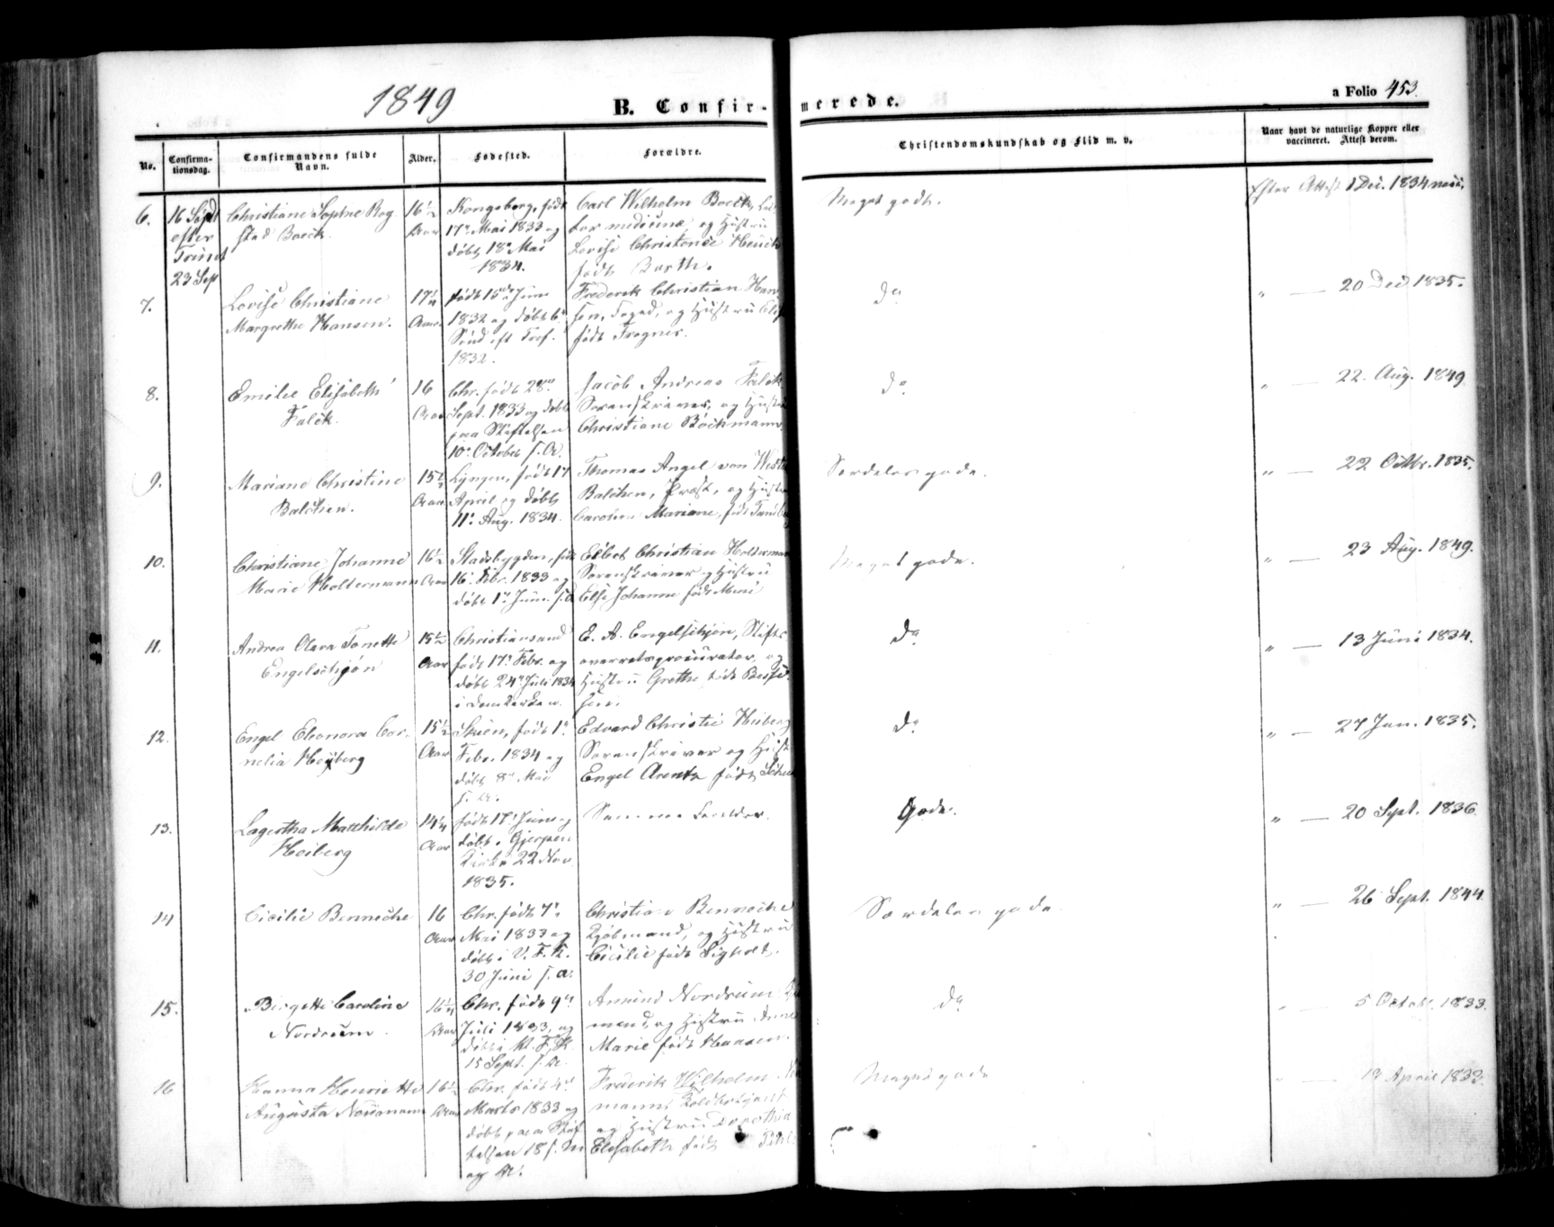 1849
B. Confirmerede.
a Folio 453.
No.
Confirmationsdag.
Confirmandens fulde Navn.
Alder.
Fødested.
Forældre.
Christendomskundskab og Flid m. v.
Naar havt de naturlige Kopper eller vaccineret. Attest derom.
6.
16 Sønd
efter
Trinit
23 Sept
Christiane Sophie Rog
stad Boeck.
16½
Aar
Kongsberg, født
17de Mai 1833 og
døbt 18de Mai
1834.
Carl Wilhelm Boeck,
tor medicinæ, og Hustru
Lovise Christense
født Barth.
Meget godt.
Efter Attest 1 Dec. 1834
7.
Lovise Christiane
Margrethe Hansen.
17¼
Aar
født 15de Juni
1832 og døbt 6te
Sønd eft Tref.
1832.
Frederik Christian Han
sen, Foged, og Hustru
født Fragner.
do
" — 20 Dec. 1835.
8.
Emilie Elisabeth
Falck.
16
Aar
Chr. født 28de
Sept. 1833 og døbt
paa Stiftelsen
10de October s. A.
Jacob Andreas Falck
Sorenskriver, og Hustru
Christiane Böckmann
do
" — 22. Aug. 1849
9.
Mariane Christine
Balchen.
15½
Aar
Lyngen, født 17
April og døbt
11te Aug. 1834.
Thomas Angel von West
Balchen, Provst, og Hustru
Caroline Mariane, født
Særdeles gode.
" — 22 Octbr. 1835.
10.
Christiane Johanne
Marie Holtermann
16½
Aar
Stadsbygden, født
16de Febr. 1833 og
døbt 1ste Juni s. A
Eibert Christian Holterman
Sorenskriver og Hustru
Else Johanne født
Meget gode.
" — 23 Aug. 1849.
11.
Andrea Olava Tonette
Engelschjøn
15½
Aar
Christiansand
født 17de Febr. og
døbt 24de Juli 1834
i Domkirken.
E. A. Engelschjøn, Stifts
overretsprocurator, og
Hustru Grethe født
do
" — 13 Juni 1834.
12.
Engel Eleonora Cor
nelia Heiberg
15½
Aar
Skien, født 1ste
Febr. 1834 og
døbt 8de Mai
s. A.
Edvard Christie Heiberg
Sorenskriver og Hust
Engel Arentz født
do
" — 27 Jan. 1835.
13.
Lagertha Matthilde
Heiberg
14¼
Aar
født 17de Juni og
døbt i Gjerpen
Kirke 22 Nov
1835.
Samme Forældre.
Gode.
" — 20 Sept. 1836
14
Cicilie Benneche
16
Aar
Chr. født 7de
Mai 1833 og
døbt i V. F. K.
30 Juni s. A.
Christian Benneche
Kjøbmand, og Hustru
Cicilie født Sigholt.
Særdeles gode.
" — 26 Sept. 1844
15.
Birgette Caroline
Nordrum
16¼
Aar
Chr. født 9de
Juli 1833, og
døbt i V. F. K
15 Sept. s. A.
Amund Nordrum
mand, og Hustru Anne
Marie født Hansen.
do
" — 5 Octob. 1833.
16
Hanna Henriette
Augusta Neumann
16½
Aar
Chr. født 4de
Marts 1833 og
døbt paa Stif
telsen 18 s. M
og A.
Frederik Wilhelm
mann, Toldbetjent
og Hustru Dorothea
Elisabeth født
Meget gode
" — 19 April 1833.